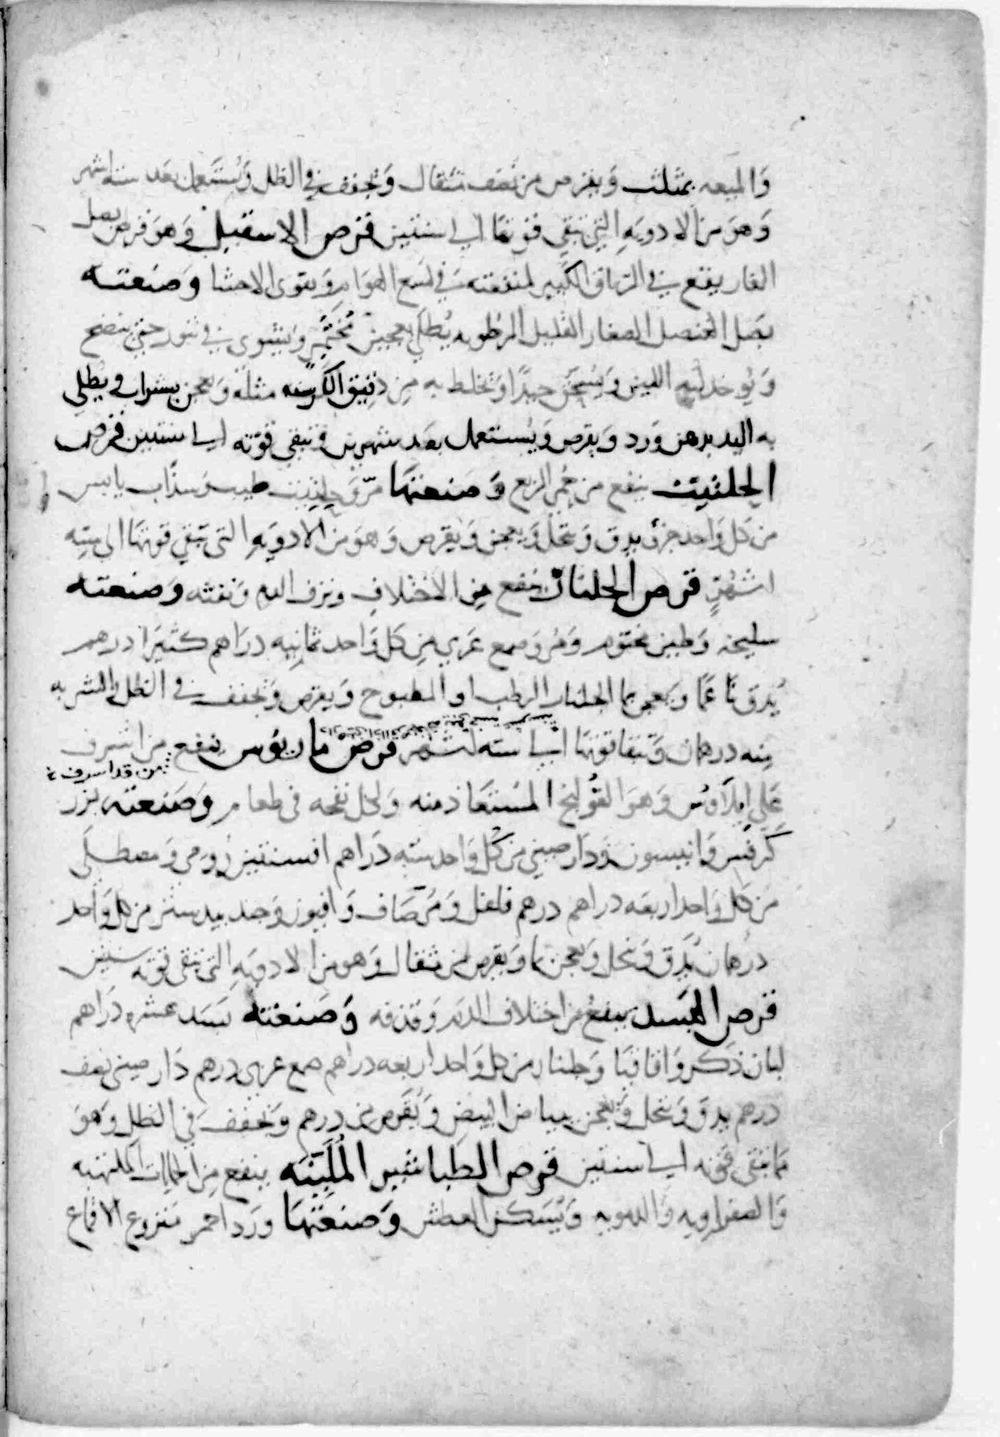 والميعه بمثلث ويقرص من نصف مثقال ويجفف في الظل ويستعمل بعد ستة اشهر
وهو من الادويه التي تبقي قوتها الي سنتين قرص الاسقيل وهو قرص بصل
الفار يقع في الترياق الكبير لمنفعته في لسع الهوام ويقوي الاحشا وصنعته
بصل العنصل الصغار القليل الرطوبه يطلي بعجين مختمر ويشوي في تنور حتي ينضج
ويوخذ لبه اللين ويسحق جيدا ويخلط به من دقيق الكرسنه مثله ويعجن بشراب ويطلي
به اليد بدهن ورد ويقرص ويستعمل بعد شهرين وتبقي قوته الي سنتين قرص
الحلتيت ينفع من حمي الربع وصنعتها مر وحلتيت طيب وسذاب يابس
من كل واحد جزؤ يدق وينخل ويعجن ويقرص وهو من الادويه التي تبقي قوتها الي سته
اشهر قرص الجلنار ينفع من الاختلاف ونزف الدم ونفثه وصنعته
سليخه وطين مختوم ومر وصمغ عربي من كل واحد ثمانيه دراهم كثيرا درهم
يدق ناعما ويعجن بما الجلنار الرطب او المطبوخ ويقرص ويجفف في الظل والشربه
منه درهمان وتبقا قوتها الي سته اشهر قرص ماريوس ينفع من اشرف
من قد اشرف
علي ايلاوس وهو القولنج المستعاذ منه ولحل نفخه في طعام وصنعته بزر
كرفس وانيسون ودارصيني من كل واحد سته دراهم افسنتين رومي ومصطكي
من كل واحد اربعه دراهم درهم فلفل ومر صاف وافيون وجندبيدستر من كل واحد
درهمان يدق وينخل ويعجن بما ويقرص من مثقال وهو من الادويه التي تبقي قوته سنتين
قرص البسد ينفع من اختلاف الدم وقذفه وصنعته بسد عشره دراهم
لبان ذكر واقاقيا وجلنار من كل واحد اربعه دراهم صمغ عربي درهم دارصيني نصف
درهم يدق وينخل ويعجن ببياض البيض ويقرص من درهم ويجفف في الظل وهو
مما تبقي قوته الي سنتين قرص الطباشير الملينه ينفع من الحميات الملتهبه
والصفراويه والدمويه ويسكن العطش وصنعتها ورد احمر منزوع الاقماع